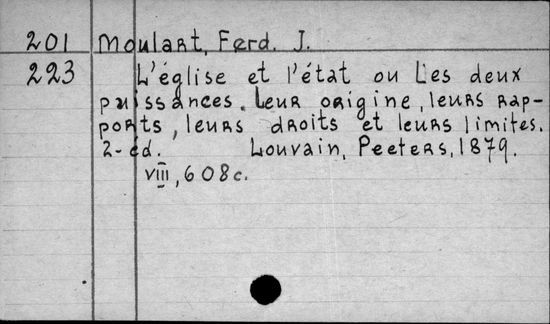 201 Moulart, Ferd. J.
223 L'église et l'état ou Les deux
puissances. Leur origine, leurs rap-
ports, leurs droits et leurs limites.
2-éd. Louvain, Peeters, 1879.
viii, 608c.